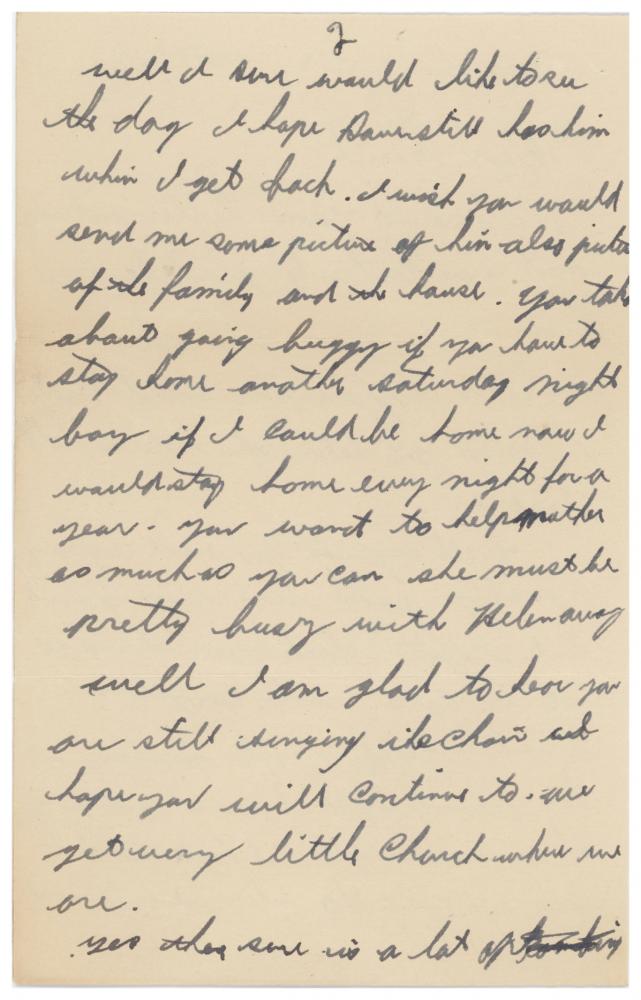 2
well I sure would like to see
the dog I hope Dave still has him
when I get back. I wish you would
send me some picture of him also pictu
of the family and the house. You talk
about going buggy if you have to
stay home another saturday night
boy if I could be home now I
would stay home every night for a
year. you want to help mother
as much as you can she must be
pretty busy with Helen away
well I am glad to hear you
are still singing in choir and
hope you will continue to. we
get very little Church where we
are.
yes there sure is a lot of